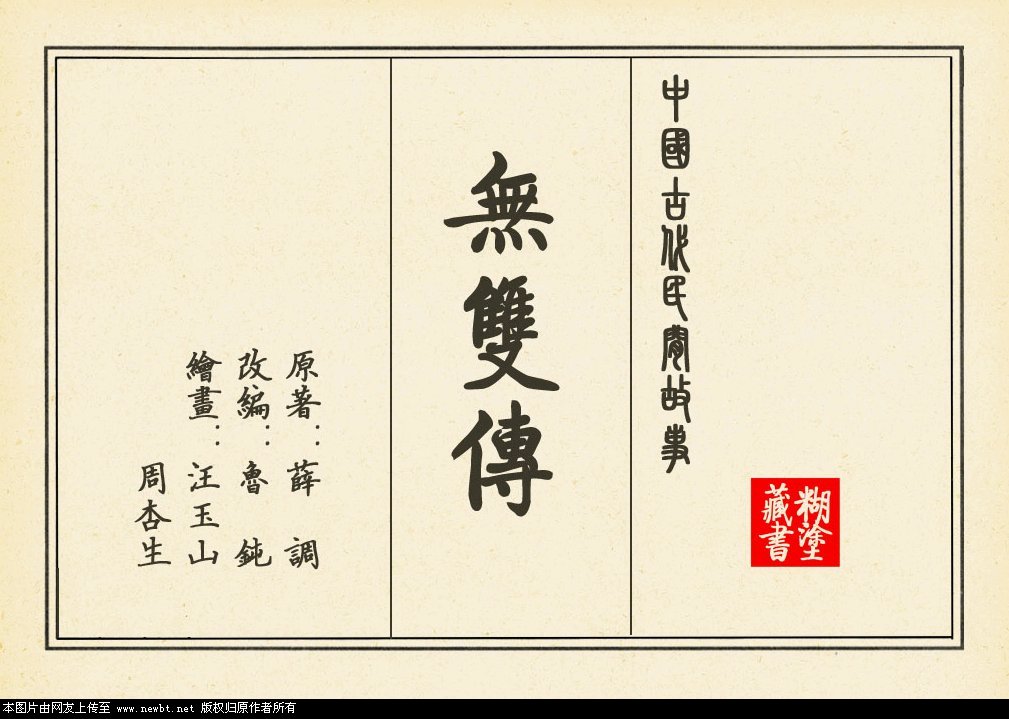 中國古代民間故事
糊塗
藏書
無雙傳
原著：薛調
改編：魯鈍
繪畫：汪玉山
周杏生
本图片由网友上传至 www.newbt.net 版权归原作者所有